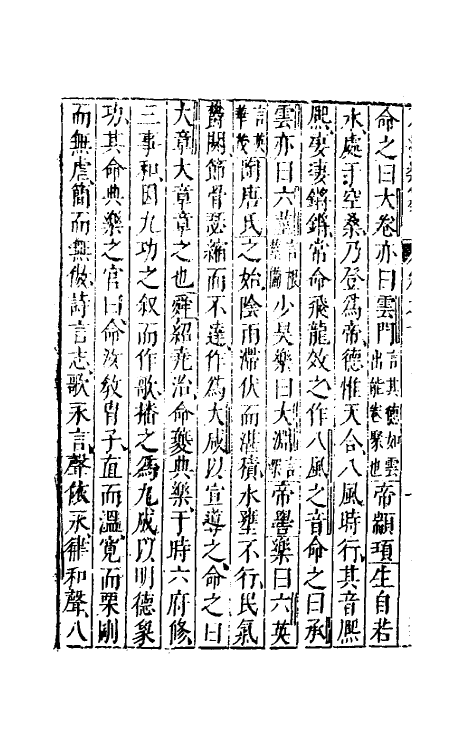 命之曰大卷亦曰雲門言其德如雲出能卷聚也帝顓頊生自若
水處于空桑乃登為帝德惟天合八風時行其音熈
熈淒淒鏘鏘常命飛龍效之作八風之音命之曰承
雲亦曰六莖 少昊樂曰大淵 帝嚳樂曰六英
言英華茂陶唐氏之始陰雨滯伏而湛積水壅不行民氣
鬱閼筋骨瑟縮而不達作為大咸以宣導之命之曰
大章大章章之也舜紹堯治命夔典樂于時六府修
三事和因九功之叙而作歌播之為九成以明德象
功其命典樂之官曰命汝敎胄子直而溫寛而栗剛
而無虐簡而無傲詩言志歌永言聲依永律和聲八